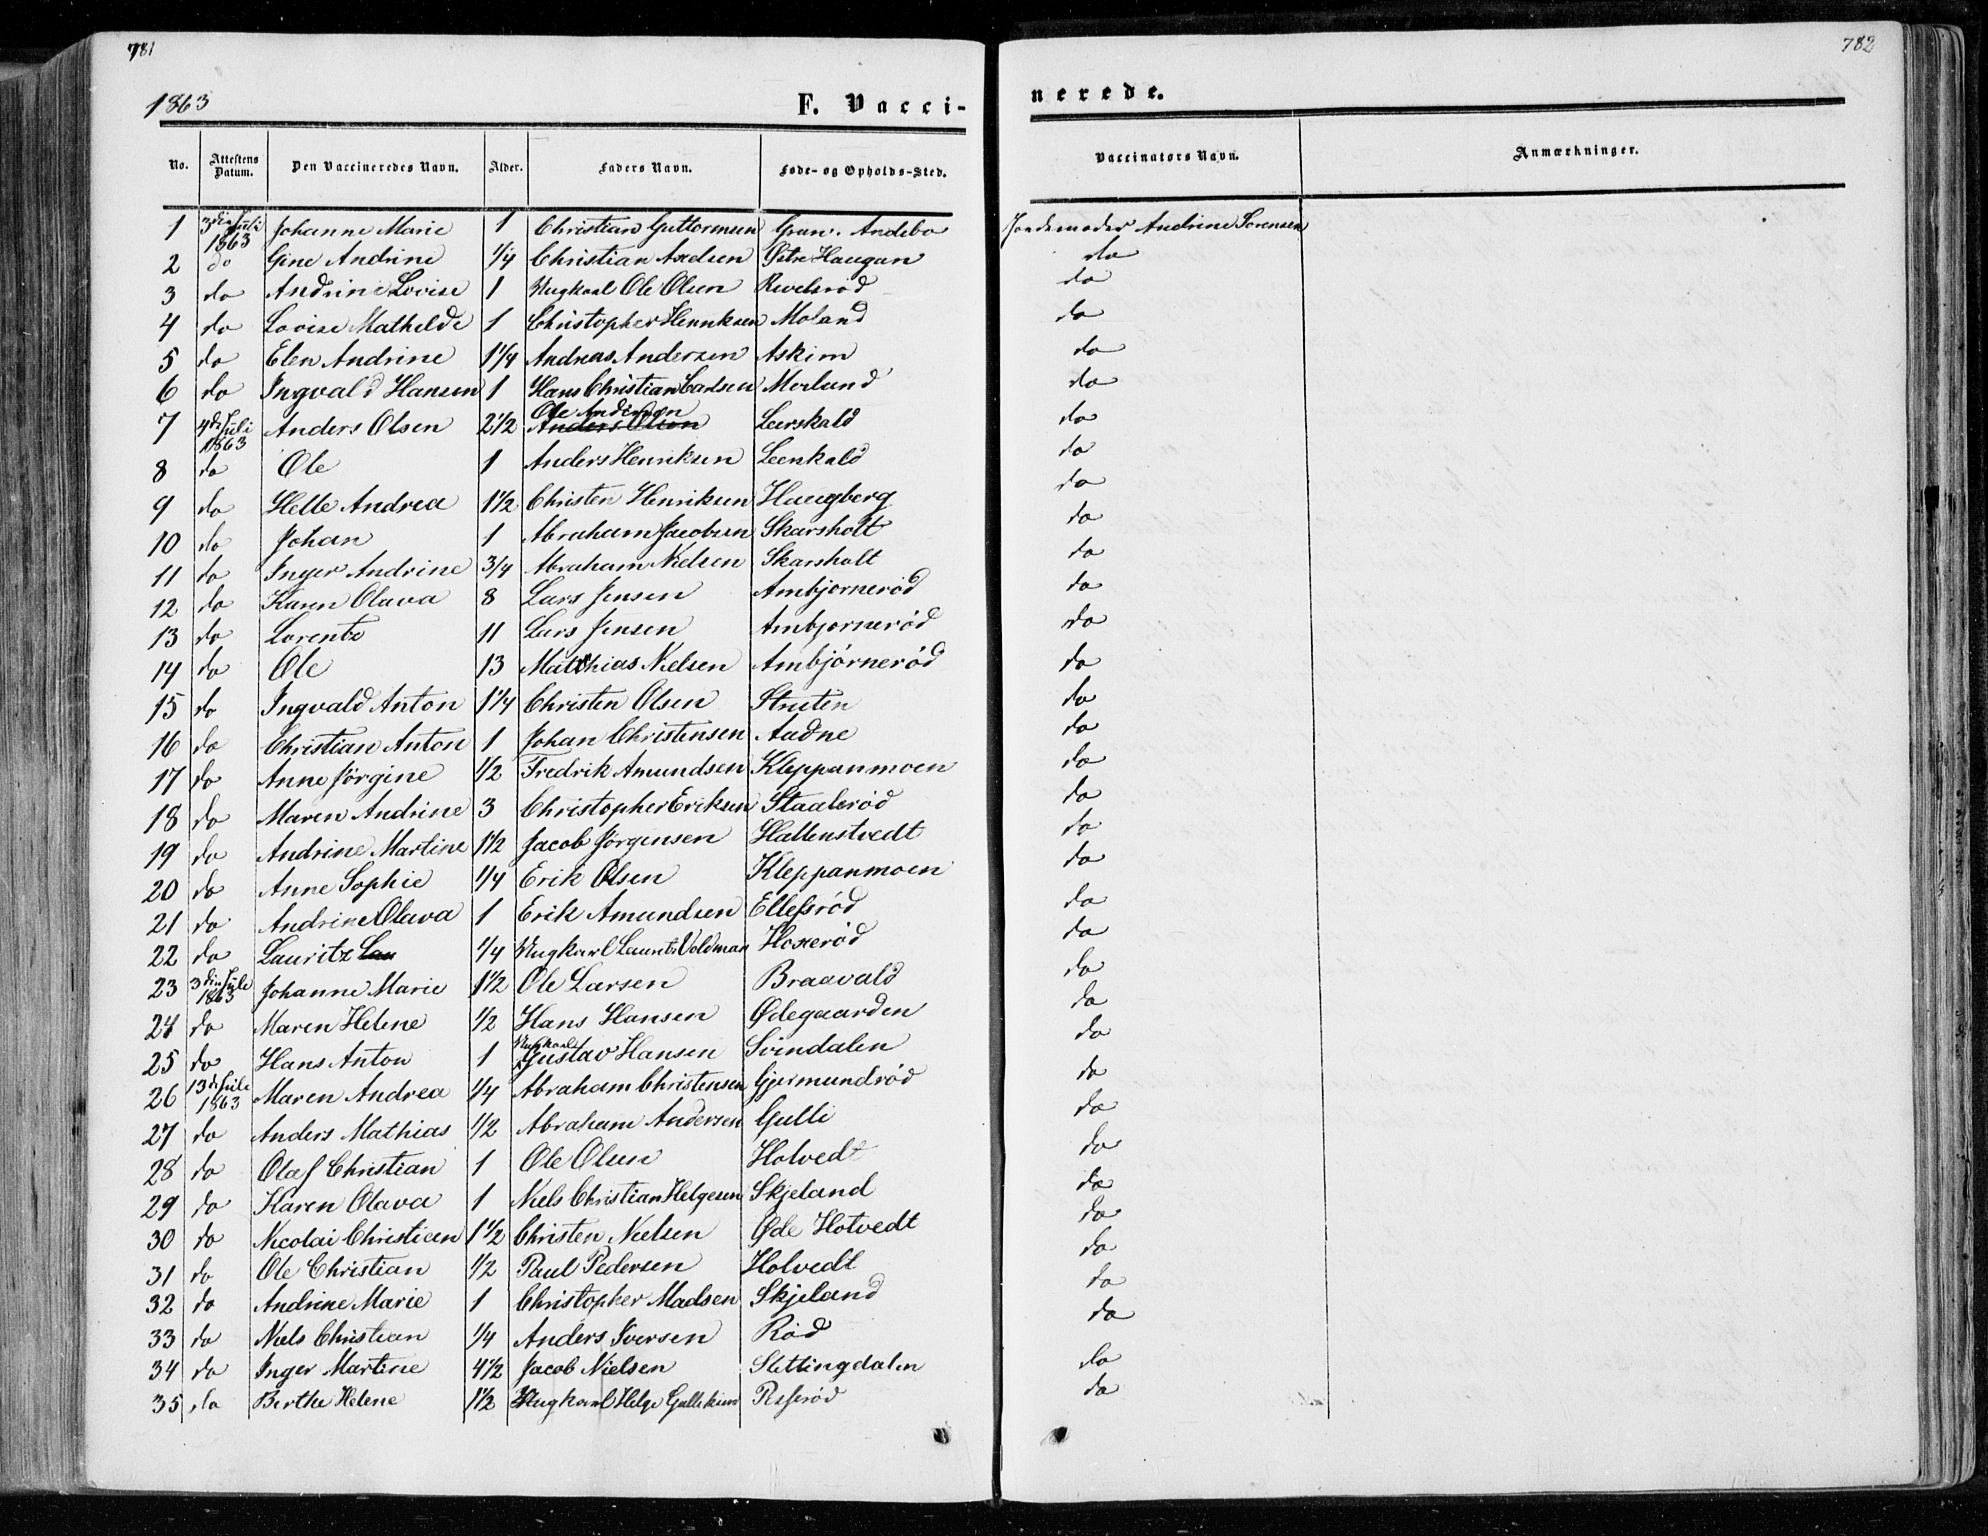 781
782
1863
F. Vacci-
nerede.
No. Attestens Datum. Den Vaccineredes Navn. Alder. Faders Navn. Føde- og Opholds-Sted. Vaccinators Navn. Anmærkninger.
1 3die Juli 1863 Johanne Marie 1 Christian Guttormsen Gran. Andebo Jordemoder Andrine Sørensen
2 do Gine Andrine 1/4 Christian Axelsen Østre Haugan do
3 do Andrine Lovise 1 Ungkarl Ole Olsen Revelsrød do
4 do Lovise Mathilde 1 Christopher Henriksen Moland do
5 do Elen Andrine 1 1/4 Andreas Andersen Askim do
6 do Ingvald Hansen 1 Hans Christian Carlsen Morlund do
7 4de Juli 1863 Anders Olsen 2 1/2 Ole Andersen Anders Olsen Leerskald do
8 do Ole 1 Anders Henriksen Leerskald do
9 do Helle Andrea 1 1/2 Christen Henriksen Haugberg do
10 do Johan 1 Abraham Jacobsen Skarsholt do
11 do Inger Andrine 3/4 Abraham Nielsen Skarsholt do
12 do Karen Olava 8 Lars Jensen Ambjornerød do
13 do Lorents 11 Lars Jensen Ambjornerød do
14 do Ole 13 Matthias Nielsen Ambjørnerød do
15 do Ingvald Anton 1 1/4 Christen Olsen Struten do
16 do Christian Anton 1 Johan Christensen Audne do
17 do Anne Jørgine 1/2 Fredrik Amundsen Kleppanmoen do
18 do Maren Andrine 3 Christopher Eriksen Staalerød do
19 do Andrine Martine 1 1/2 Jacob Jørgensen Hallenstvedt do
20 do Anne Sophie 1/4 Erik Olsen Kleppanmoen do
21 do Andrine Olava 1 Erik Amundsen Ellefsrød do
22 do Lauritz Lau 1/4 Ungkarl Laurits Voldman Hoxerød do
23 3die Juli 1863 Johanne Marie 1 1/2 Ole Larsen Braavald do
24 do Maren Helene 1/2 Hans Hansen Ødegaarden do
25 do Hans Anton 1 Ungkarl Gustav Hansen Svindalen do
26 13de Juli 1863 Maren Andrea 1/4 Abraham Christensen Gjermundrød do
27 do Anders Mathias 1/2 Abraham Andersen Gulli do
28 do Olaf Christian 1 Ole Olsen Holvedt do
29 do Karen Olava 1 Niels Christian Helgesen Skjeland do
30 do Nicolai Christian 1 1/2 Christen Nielsen Øde Hotvedt do
31 do Ole Christian 1/2 Paul Pedersen Holvedt do
32 do Andrine Marie 1 Christopher Madsen Skjeland do
33 do Niels Christian 1/4 Anders Iversen Rød do
34 do Inger Martine 4 1/2 Jacob Nielsen Slettingdalen do
35 do Berthe Helene 1 1/2 Ungkarl Helge Gulliksen Resserød do